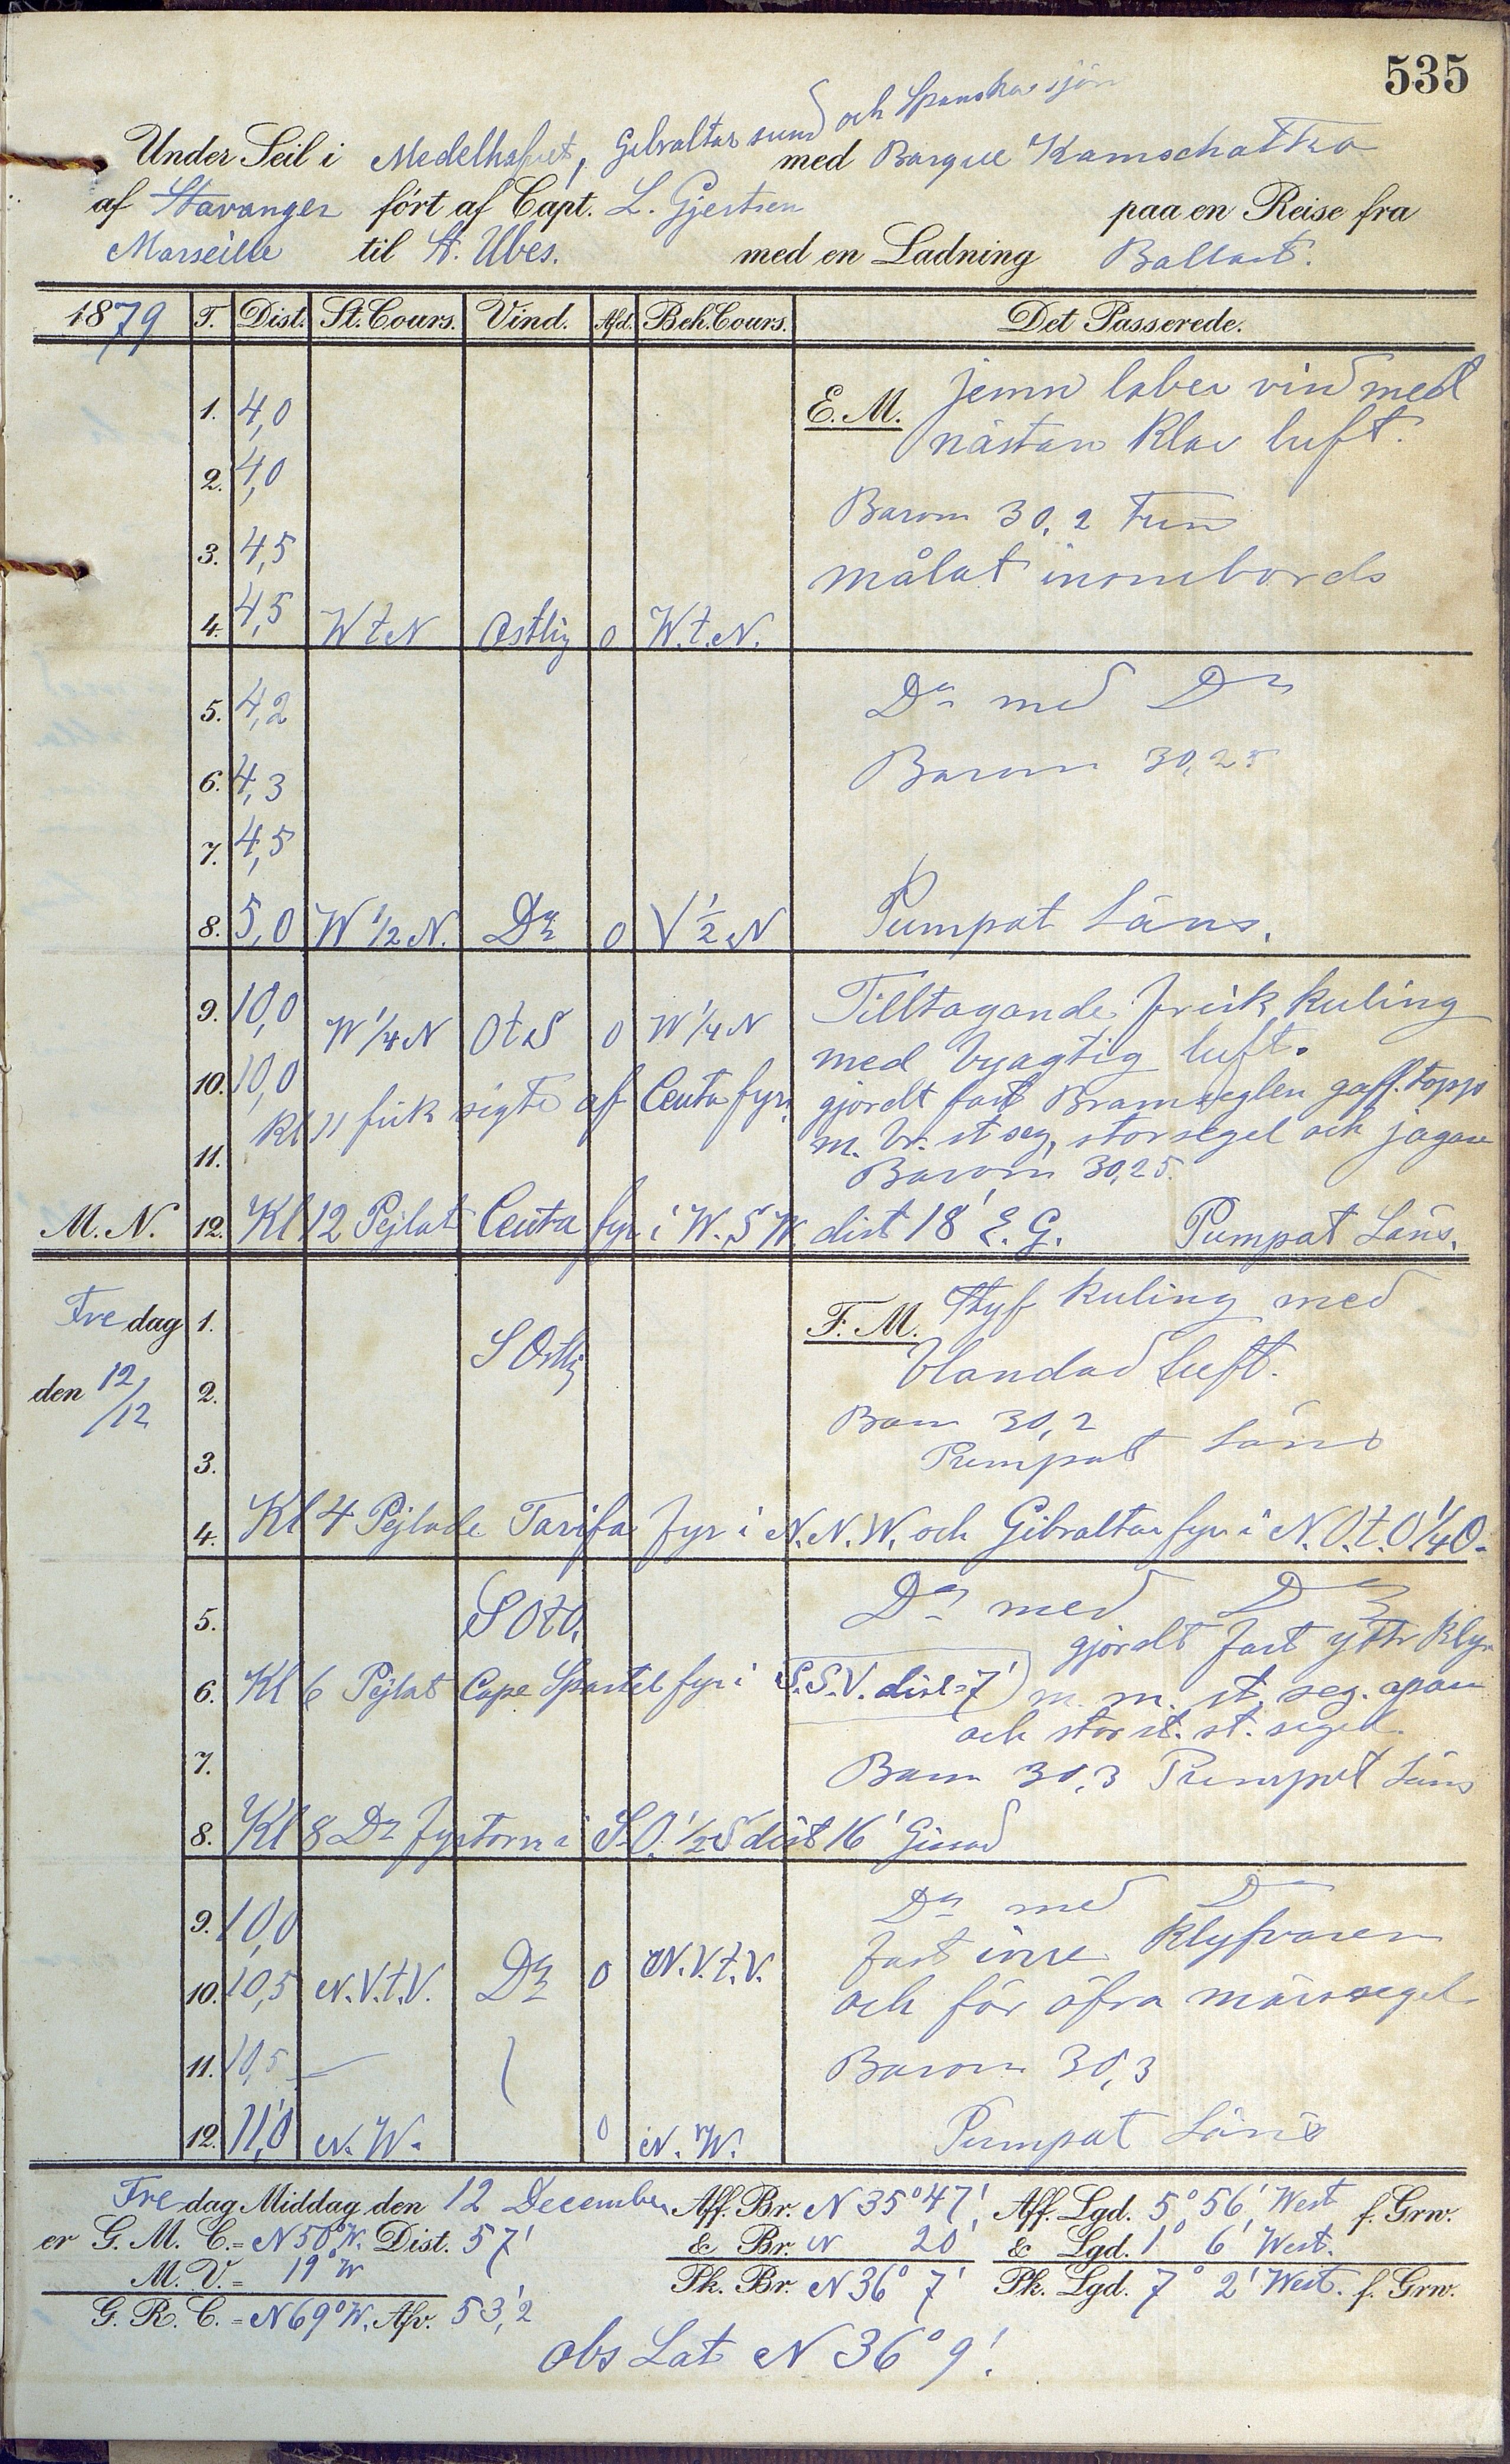 535
och Spanska sjön
Under Seil i Medelhafvet, Gibraltar sund med Barque Kamschatka
af Stavanger fört af Capt. L. Gjertsen paa en Reise fra
Marseille til St. Ubes. med en Ladning Ballast.
1879 T. Dist. St. Cours. Vind. Afd. Beh. Cours. Det Passerede.
1. 4,0 E. M. jemn laber vind med
nästan klar luft.
2. 4,0
Barom 30,2 Tum
3. 4,5
målat inombords
4. 4,5 W t N Ostlig 0 W. t. N.
5. 4,2 Do med Do
6. 4,3 Barom 30,25
7. 4,5
8. 5,0 W 1/2 N. Do 0 V 1/2 N Pumpat Läns.
9. 10,0 W 1/4 N O t S 0 W 1/4 N Tilltagande frisk kuling
10. 10,0 med byagtig luft.
Kl 11 fick sigte af Ceuta fyr. gjordt fast Bramseglen gaff. topps
11. m. br. st seg, storsegel och jagare
Barom 30,25.
M. N. 12. Kl 12 Pejlat Ceuta fyr i W. S W. dist 18' E. G. Pumpat Läns.
Fredag 1. F. M. Styf kuling med
S Ostlig
blandad luft.
den 12/12 2.
Barm 30,2
3. Pumpat Läns
4. Kl 4 Pejlade Tarifa fyr i N. N. W. och Gibraltar fyr i N. O. t. O. 1/4 O.
5. S O t O. Do med Do
gjordt fast yttr klyv
6. Kl 6 Pejlat Cape Spartel fyr i S. S. V. dist = 7' m. m. st. seg. apan
och storst. st. segel.
7. Barm 30,3 Pumpat Läns
8. Kl 8 Do fyrtorn i S. O. 1/2 S dist 16' Gissad
9. 10,0 Do med Do
fast inre Klyfvaren
10. 10,5 N. V. t. V. Do 0 N. V. t. V.
och för öfra märssegel
11. 10,5 Barom 30,3
12. 11,0 N. W. 0 N. W. Pumpat Läns
Fredag Middag den 12 December Aff. Br. N 35° 47' Aff. Lgd. 5° 56' West f. Grw.
er G. M. C. = N 50° W. Dist. 57' & Br. N 20' & Lgd. 1° 6' West.
M. V. = 19° W Pk. Br. N 36° 7' Pk. Lgd. 7° 2' West. f. Grw.
G. R. C. = N 69° W. Afv. 53,2
obs Lat N 36° 9'.